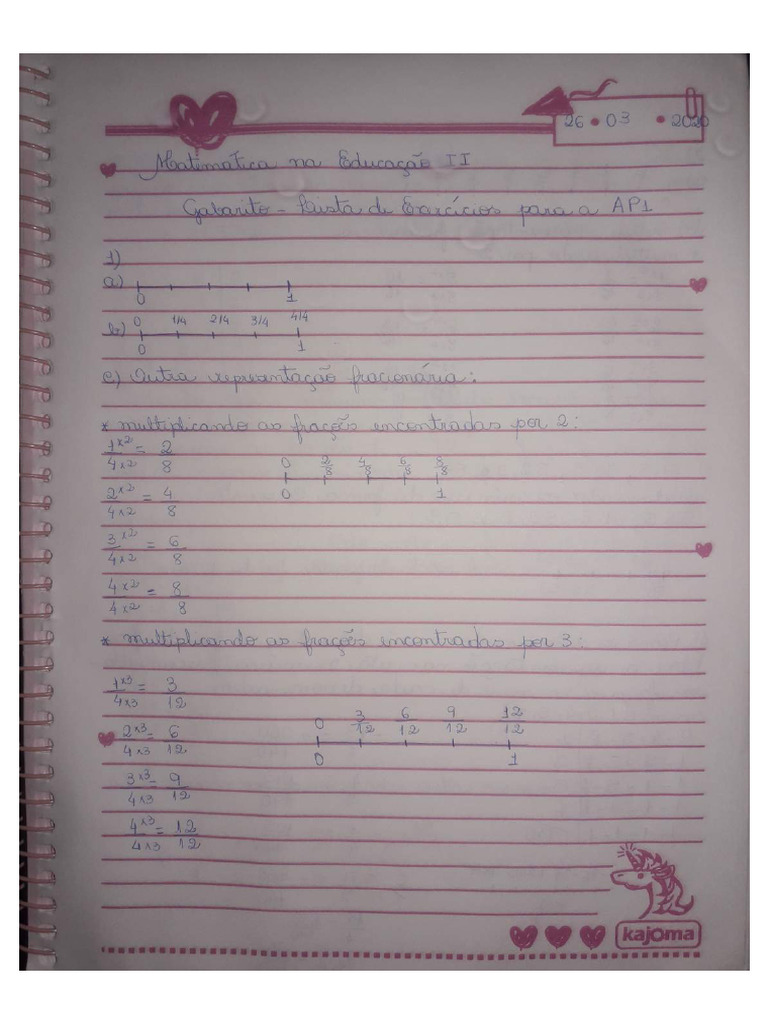 26 • 03 • 2020
Matemática na Educação II
Gabarito - Lista de Exercícios para a AP1
1)
a)
0 1
b) 0 1/4 2/4 3/4 4/4
0 1
c) Outra representação fracionária:
* multiplicando as frações encontradas por 2:
1×2/4×2 = 2/8
0 2/8 4/8 6/8 8/8
0 1
2×2/4×2 = 4/8
3×2/4×2 = 6/8
4×2/4×2 = 8/8
* multiplicando as frações encontradas por 3:
1×3/4×3 = 3/12
0 3/12 6/12 9/12 12/12
0 1
2×3/4×3 = 6/12
3×3/4×3 = 9/12
4×3/4×3 = 12/12
kajoma